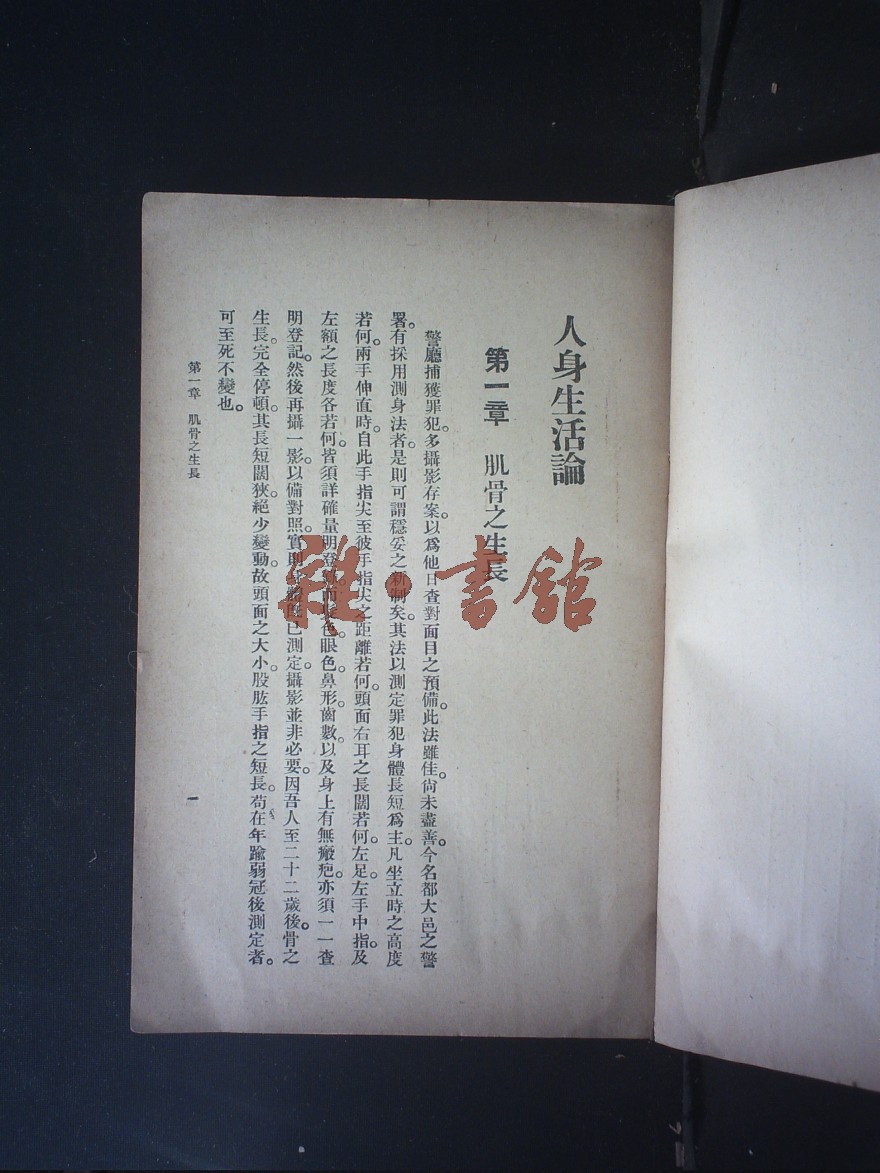 人身生活論
第一章　肌骨之生長
警廳捕獲罪犯。多攝影存案。以爲他日查對面目之預備。此法雖佳。尙未盡善。今名都大邑之警
署。有採用測身法者。是則可謂穩妥之新制矣。其法以測定罪犯身體長短爲主。凡坐立時之高度
若何。兩手伸直時。自此手指尖至彼手指尖之距離若何。頭面右耳之長闊若何。左足。左手中指。及
左額之長度各若何。皆須詳確量明登。而髮色。眼色。鼻形。齒數。以及身上有無瘢疤。亦須一一查
明登記。然後再攝一影。以備對照。實則身體既已測定。攝影並非必要。因吾人至二十二歲後。骨之
生長。完全停頓。其長短闊狹。絕少變動。故頭面之大小。股肱手指之短長。苟在年踰弱冠後測定者。
可至死不變也。
第一章　肌骨之生長
一
雜·書館